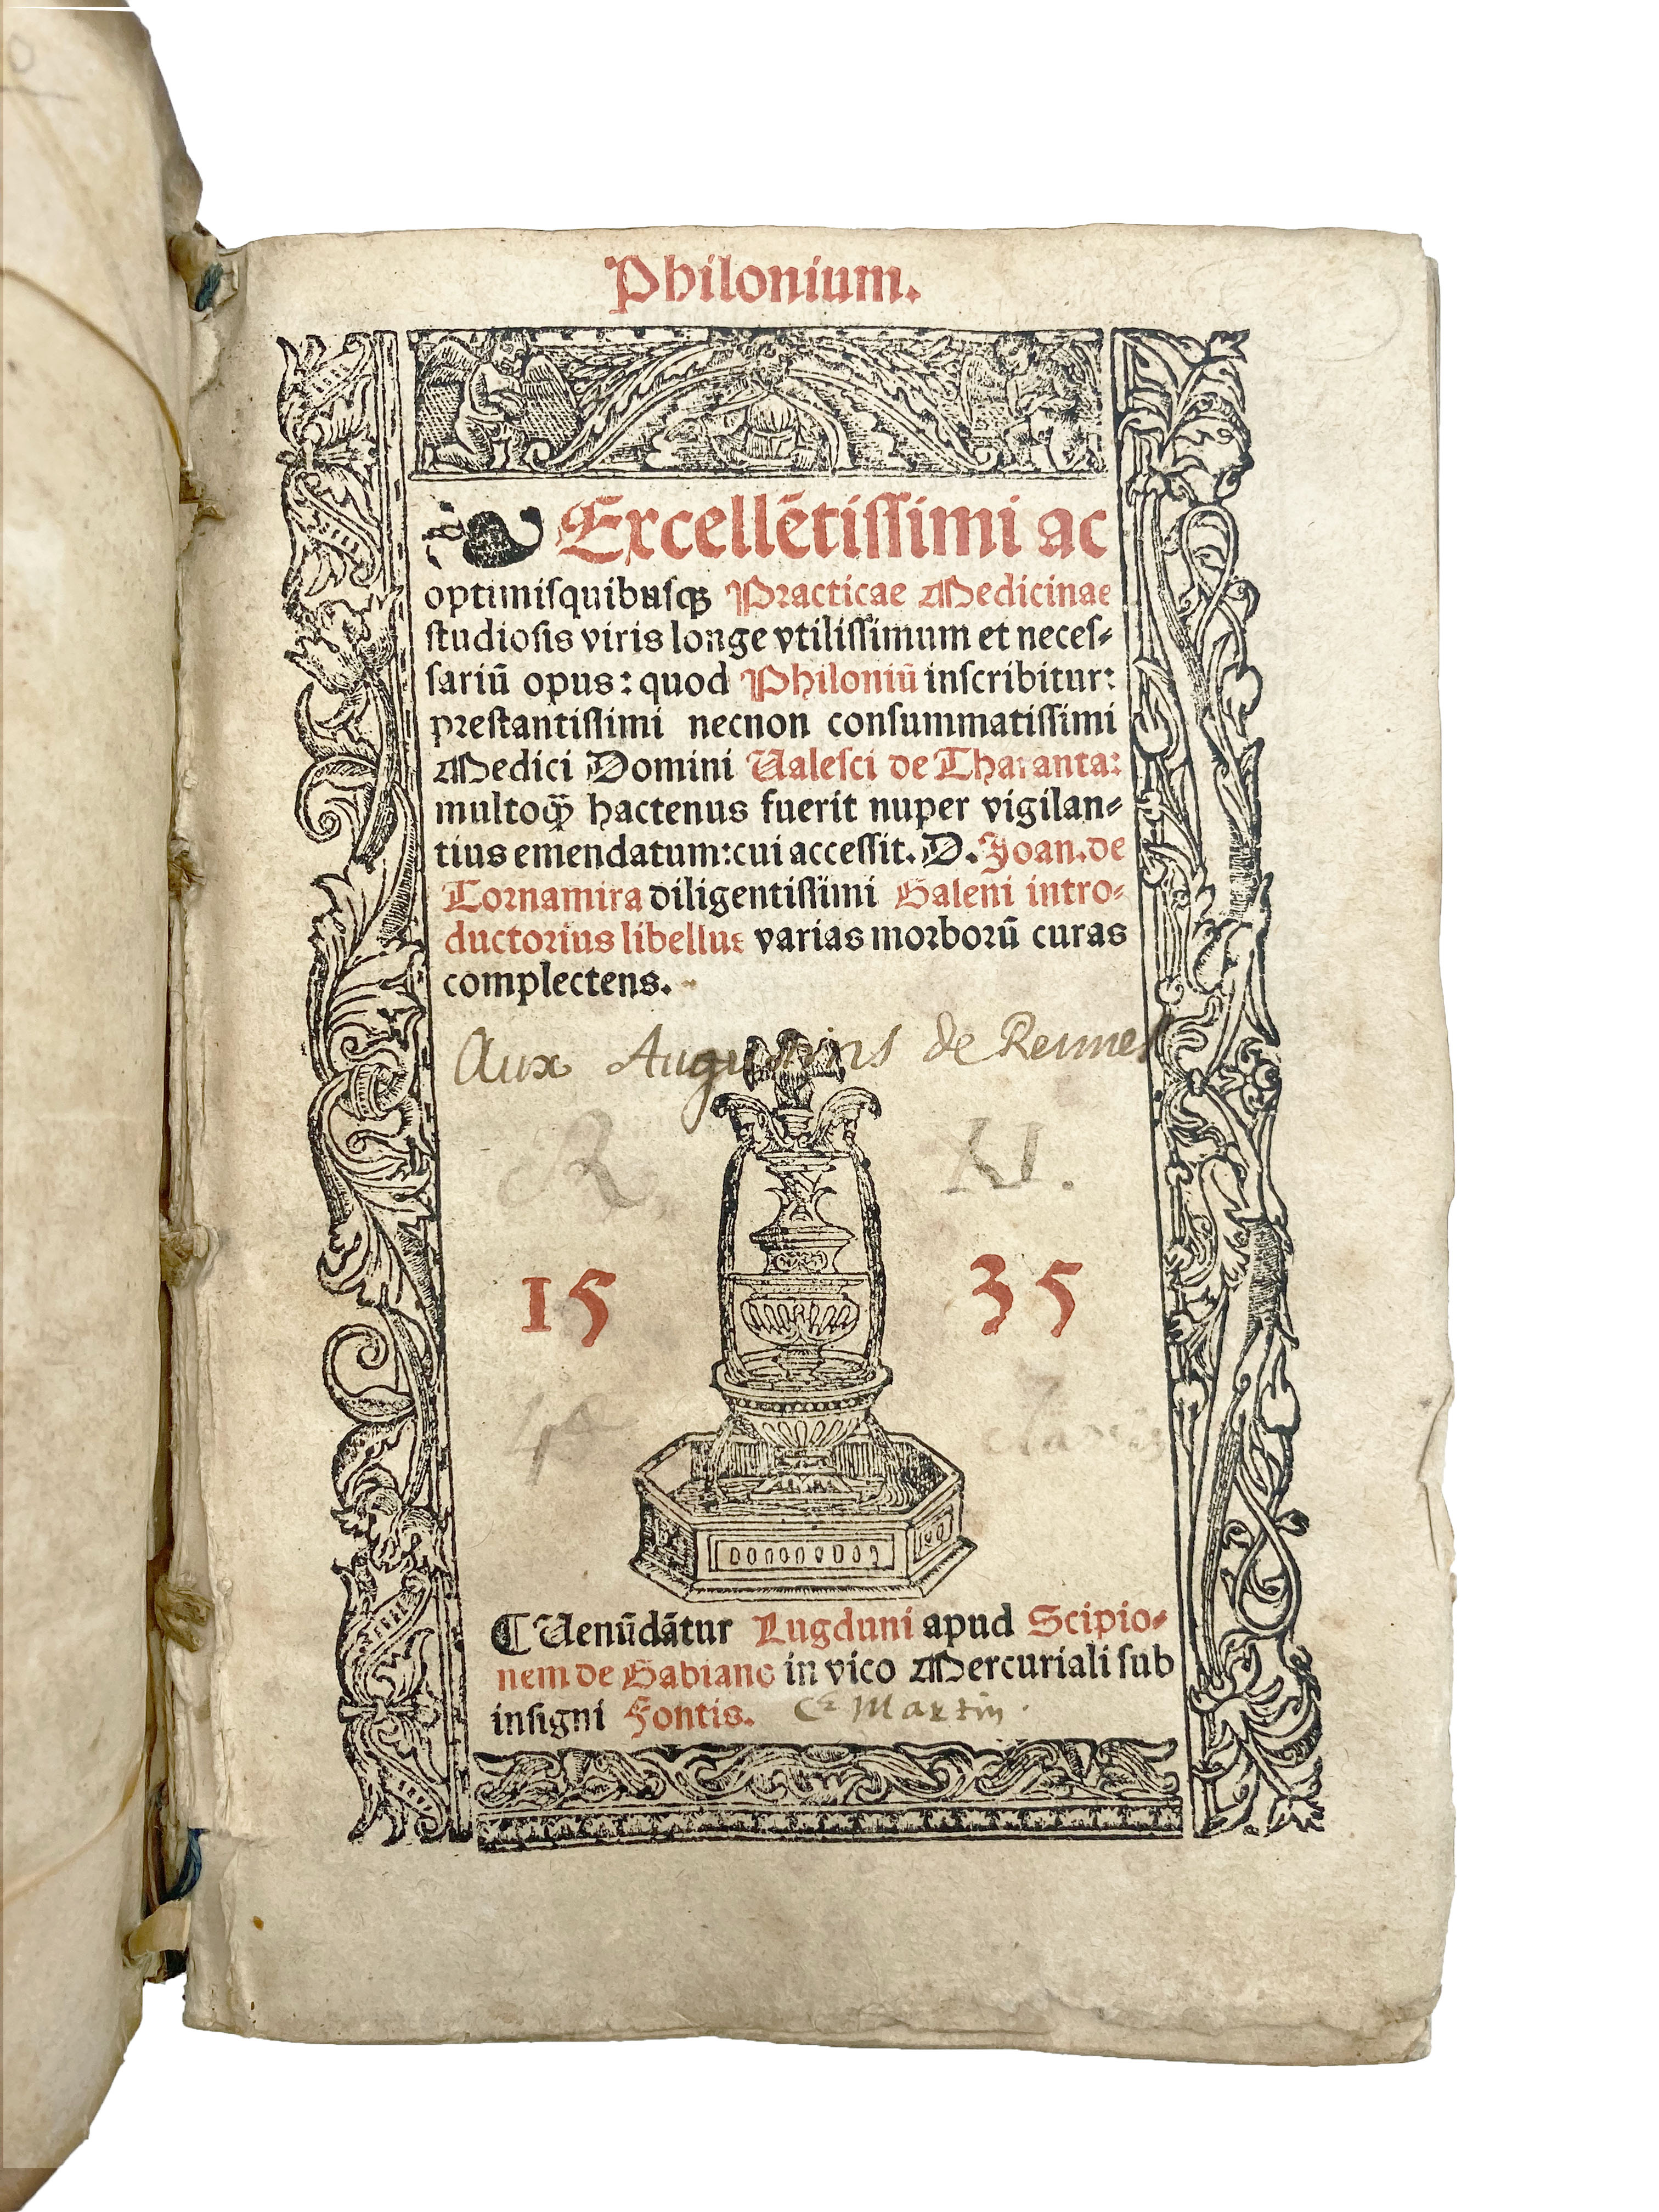 Philonium.
Excellētissimi ac
optimisquibusqꝫ Practicae Medicinae
studiosis viris longe vtilissimum et neces⸗
sariū opus: quod Philoniū inscribitur:
prestantissimi necnon consummatissimi
Medici Domini Ualesci de Tharanta:
multoq̈ꝫ hactenus fuerit nuper vigilan⸗
tius emendatum: cui accessit. D. Joan. de
Tornamira diligentissimi Galeni intro⸗
ductorius libellus varias morborū curas
complectens.
Aux Augustins de Rennes
R XI.
15 35
4
¶ Uenūdātur Lugduni apud Scipio⸗
nem de Gabiano in vico Mercuriali sub
insigni Fontis. Martin.